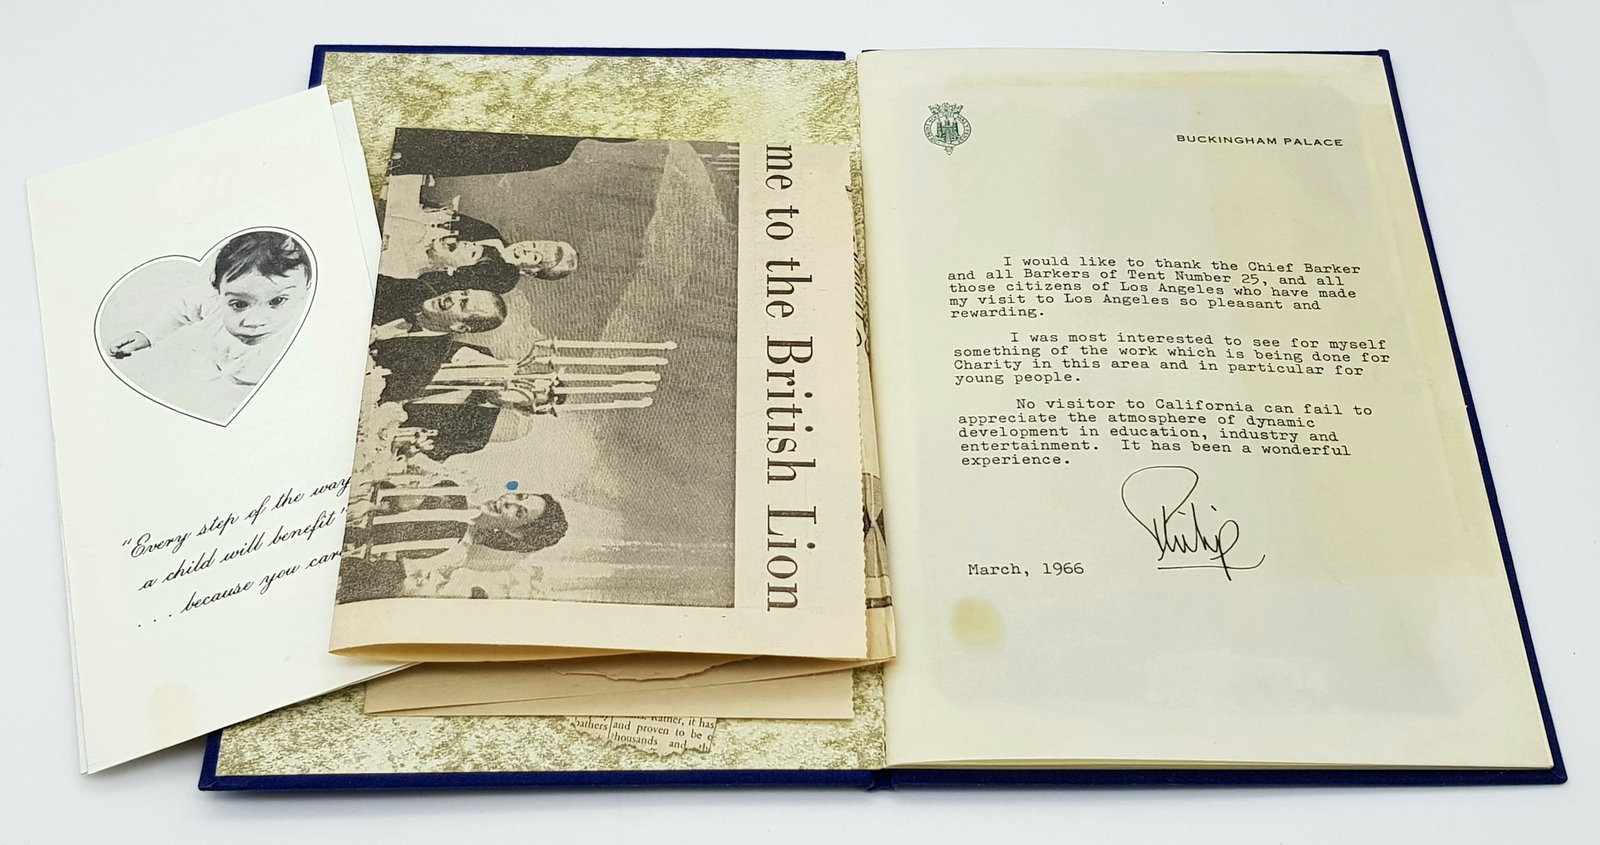 "Every step of the way
a child will benefit"
...because you care
me to the British Lion
Rather, it has
bathers and proven to be
thousands and
BUCKINGHAM PALACE
I would like to thank the Chief Barker
and all Barkers of Tent Number 25, and all
those citizens of Los Angeles who have made
my visit to Los Angeles so pleasant and
rewarding.
I was most interested to see for myself
something of the work which is being done for
Charity in this area and in particular for
young people.
No visitor to California can fail to
appreciate the atmosphere of dynamic
development in education, industry and
entertainment. It has been a wonderful
experience.
Philip
March, 1966